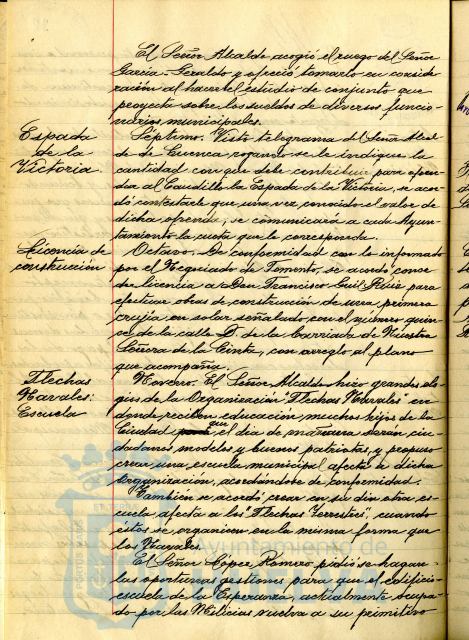 El Señor Alcalde acogió el ruego del Señor
García-Geraldo y ofreció tomarlo en conside-
ración al hacer el estudio de conjunto que
proyecta sobre los sueldos de diversos funcio-
narios municipales.
Espada
de la
Victoria.
Séptimo. Visto telegrama del Señor Alcal
de de Cuenca rogando se le indique la
cantidad con que debe contribuir para ofren-
dar al Caudillo la Espada de la Victoria, se acor-
dó contestarle que una vez conocido el valor de
dicha ofrenda, se comunicará a cada Ayun-
tamiento la cuota que le corresponda.
Licencia de
construcción
Octavo. De conformidad con lo informado
por el Negociado de Fomento, se acordó conce-
der licencia a Don Francisco Gil Ruiz para
efectuar obras de construcción de una primera
crujía en solar señalado con el número quin-
ce de la calle D de la barriada de Nuestra
Señora de la Cinta, con arreglo al plano
que acompaña.
Flechas
Navales:
Escuela
Noveno. El Señor Alcalde hizo grandes elo-
gios de la Organización "Flechas Navales" en
donde reciben educación muchos hijos de la
Ciudad que el día de mañana serán ciu-
dadanos modelos y buenos patriotas, y propuso
crear una escuela municipal afecta a dicha
Organización, acordándose de conformidad.
También se acordó crear en su día otra es-
cuela afecta a los "Flechas Terrestres", cuando
éstos se organicen en la misma forma que
los Navales.
El Señor López Romero pidió se hagan
las oportunas gestiones para que el edificio
escuela de la Esperanza, actualmente ocupa-
do por las Milicias vuelva a su primitivo
Ayuntamiento de